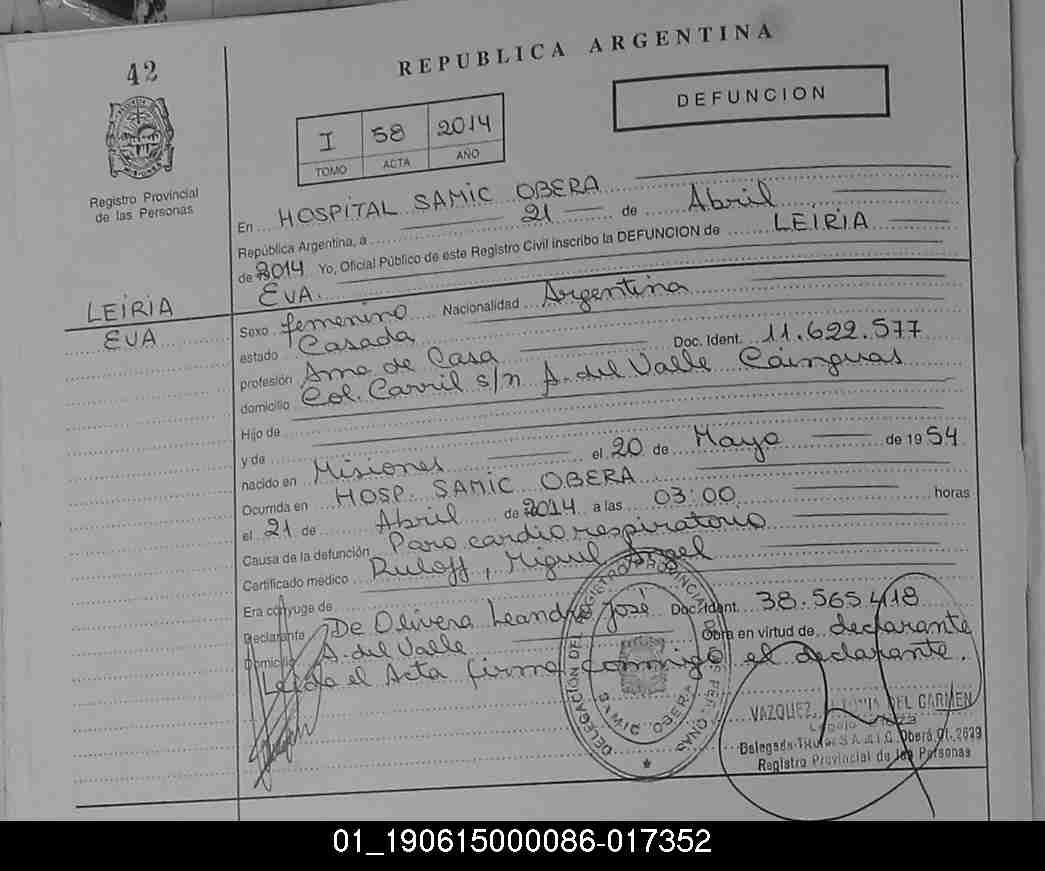 42
REPUBLICA ARGENTINA
DEFUNCION
I 58 2014
TOMO ACTA AÑO
Registro Provincial
de las Personas
En HOSPITAL SAMIC OBERA
República Argentina, a 21 de Abril
de 2014 Yo, Oficial Público de este Registro Civil inscribo la DEFUNCION de LEIRIA
EVA.
LEIRIA
EVA
Sexo femenino Nacionalidad Argentina
estado Casada Doc. Ident. 11.622.577
profesión Ama de Casa
domicilio Col. Carril s/n A. del Valle Cainguas
Hijo de
y de
nacido en Misiones el 20 de Mayo de 1954
Ocurrida en HOSP. SAMIC OBERA
el 21 de Abril de 2014 a las 03:00 horas
Causa de la defunción Paro cardiorespiratorio
Certificado médico Ruloff, Miguel Angel
Era cónyuge de
Declarante De Olivera Leandro José Doc. Ident. 38.565.418
Domicilio A. del Valle Obra en virtud de declarante
Leida el Acta firma conmigo el declarante.
DELEGACIÓN DEL REGISTRO PROVINCIAL DE LAS PERSONAS
SAMIC OBERA
VAZQUEZ, DEL CARMEN
Delegada S.A.M.I.C. Oberá Of. 2629
Registro Provincial de las Personas
01_190615000086-017352